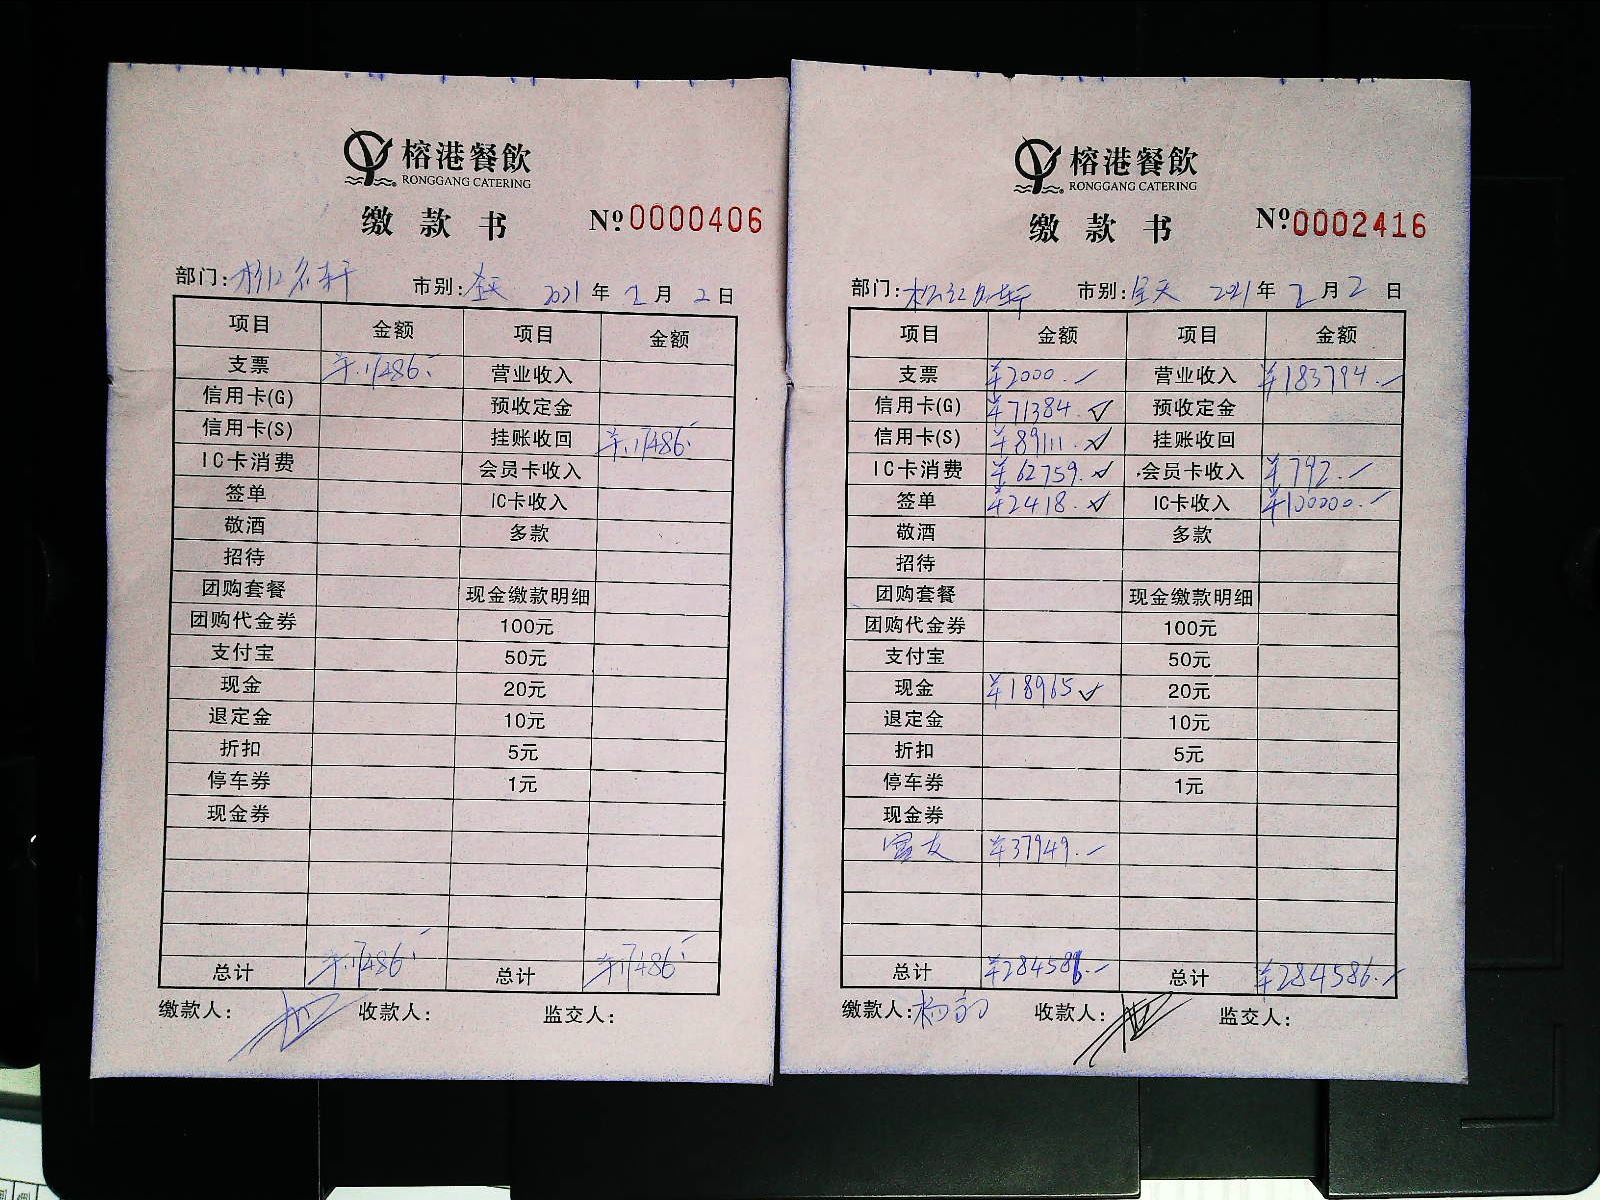 榕港餐飲
RONGGANG CATERING
缴款书 №0000406
部门: 市别:全天 2021年2月2日
项目 金额 项目 金额
支票 ¥17486.- 营业收入
信用卡(G) 预收定金
信用卡(S) 挂账收回 ¥17486.-
IC卡消费 会员卡收入
签单 IC卡收入
敬酒 多款
招待
团购套餐 现金缴款明细
团购代金券 100元
支付宝 50元
现金 20元
退定金 10元
折扣 5元
停车券 1元
现金券
总计 ¥17486.- 总计 ¥17486.-
缴款人: 收款人: 监交人:
榕港餐飲
RONGGANG CATERING
缴款书 №0002416
部门: 市别:全天 2021年2月2日
项目 金额 项目 金额
支票 ¥2000.- 营业收入 ¥183794.-
信用卡(G) ¥71384.✓ 预收定金
信用卡(S) ¥89111.✓ 挂账收回
IC卡消费 ¥62759.✓ 会员卡收入 ¥792.-
签单 ¥2418.✓ IC卡收入 ¥100000.-
敬酒 多款
招待
团购套餐 现金缴款明细
团购代金券 100元
支付宝 50元
现金 ¥18965✓ 20元
退定金 10元
折扣 5元
停车券 1元
现金券
¥37949.-
总计 ¥284586.- 总计 ¥284586.-
缴款人: 收款人: 监交人: